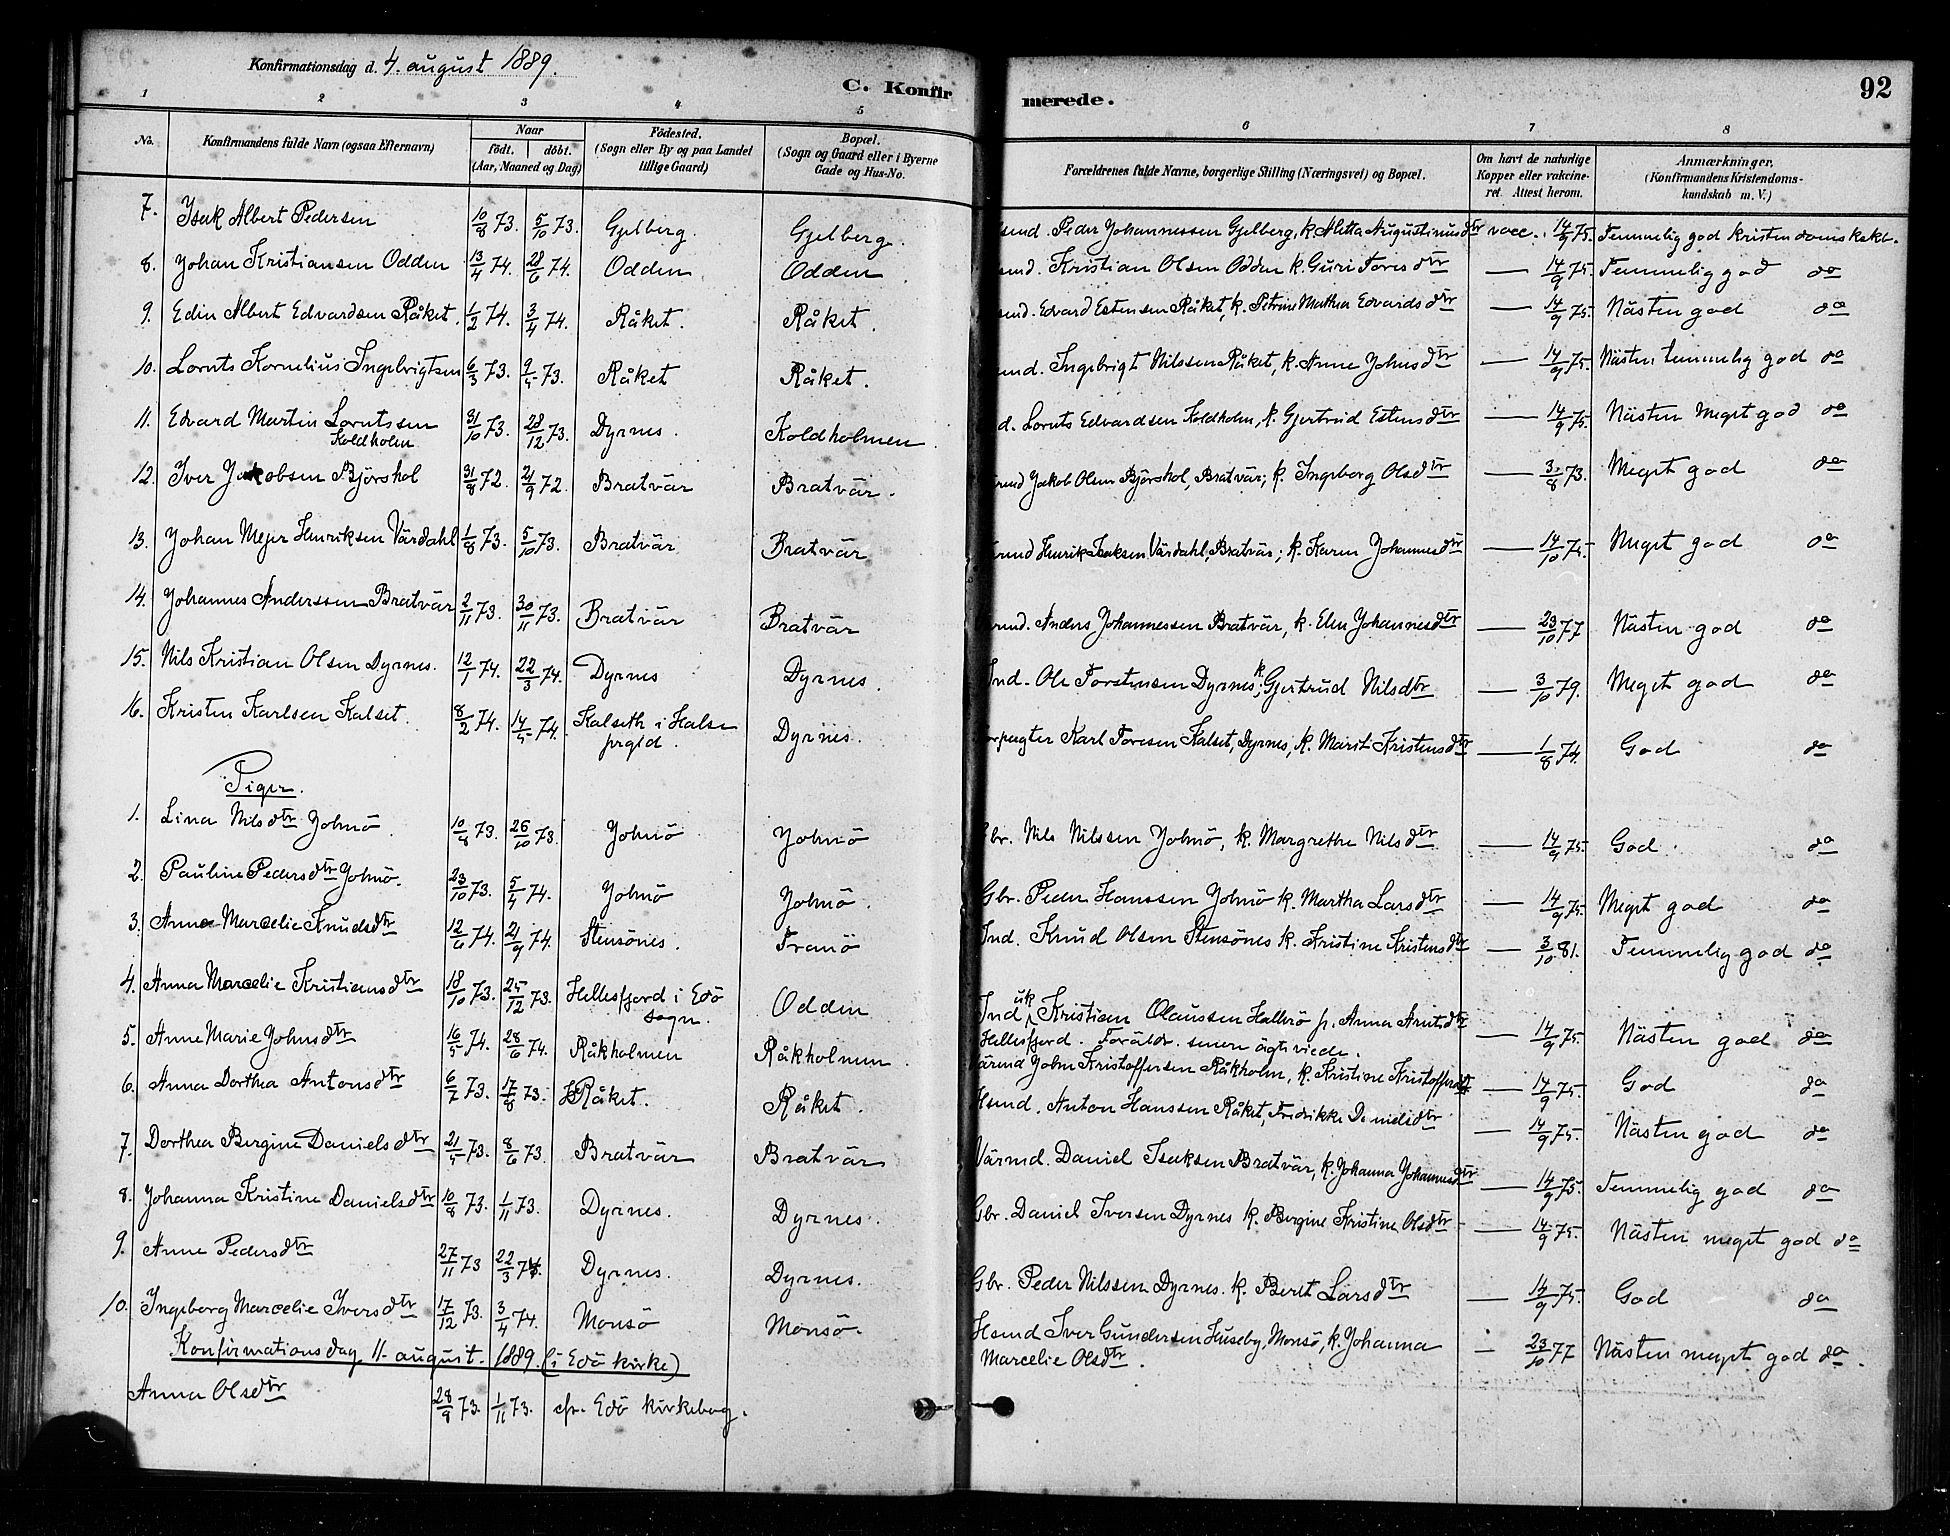 Konfirmationsdag d. 4. august 1889.
C. Konfirmerede.
92
1 2 3 4 5 6 7 8
No. Konfirmandens fulde Navn (ogsaa Efternavn) Naar födt. döbt. (Aar, Maaned og Dag) Födested. (Sogn eller By og paa Landet tillige Gaard) Bopæl. (Sogn og Gaard eller i Byerne Gade og Hus-No. Forældrenes fulde Navne, borgerlige Stilling (Næringsvei) og Bopæl. Om havt de naturlige Kopper eller vakcineret. Attest herom. Anmærkninger. (Konfirmandens Kristendomskundskab m. V.)
7. Isak Albert Pedersen 10/8 73. 5/10 73. Gjelberg. Gjelberg. Peder Johannessen Gjelberg, k. Aletta Augustinusdtr vacc. 14/9 75. Temmelig god kristendomskskb.
8. Johan Kristiansen Odden 13/4 74. 28/6 74. Odden Odden Kristian Olsen Odden k. Guri Toresdtr — 14/9 75. Temmelig god do
9. Edin Albert Edvardsen Råket. 1/2 74. 3/4 74. Råket. Råket. Edvard Estensen Råket, k. Petrine Mathea Edvardsdtr — 14/9 75. Nästen god do
10. Lornts Kornelius Ingebrigtsen 6/3 73. 9/5 73. Råket Råket. Ingebrigt Nilssen Råket, k. Anne Johnsdtr — 14/9 75. Nästen temmelig god do
11. Edvard Martin Lorntssen Koldholm 31/10 73. 28/12 73. Dyrnes. Koldholmen. Lornts Edvardsen Koldholm, k. Gjertrud Estensdtr — 14/9 75. Nästen Meget god do
12. Iver Jakobsen Björshol 31/8 72. 21/9 72. Bratvär Bratvär. Jakob Olsen Björshol, Bratvär; k. Ingeborg Olsdtr — 3/8 73. Meget god do
13. Johan Mejer Henriksen Värdahl 1/8 73. 5/10 73. Bratvär Bratvär Henrik Isaksen Värdahl, Bratvär; k. Karen Johannesdtr — 14/10 75. Meget god do
14. Johannes Anderssen Bratvär 2/11 73. 30/11 73. Bratvär Bratvär Anders Johannessen Bratvär, k. Elen Johannesdtr — 23/10 77 Nästen god do
15. Nils Kristian Olsen Dyrnes. 12/1 74. 22/3 74. Dyrnes Dyrnes. Ind. Ole Torstensen Dyrnes, k. Gjertrud Nilsdtr — 3/10 79. Meget god do
16. Kristen Karlsen Kalset. 8/2 74. 14/5 74. Kalseth i Halse prgld. Dyrnes. Karl Toresen Kalset, Dyrnes, k. Marit Kristensdtr — 1/8 74. God do
Piger.
1. Lina Nilsdtr Jolmö. 10/8 73. 26/10 73. Jolmö Jolmö Gbr. Nils Nilssen Jolmö, k. Margrethe Nilsdtr — 14/9 75. God. do
2. Pauline Pedersdtr Jolmö. 23/10 73. 5/4 74. Jolmö Jolmö. Gbr. Peder Hanssen Jolmö k. Martha Larsdtr — 14/9 75. Meget god do
3. Anne Marcelie Knudsdtr 12/6 74. 21/9 74. Stensönes. Tranö Ind. Knud Olsen Stensönes k. Kristine Kristensdtr — 3/10 81. Temmelig god do
4. Anna Marcelie Kristiansdtr 18/10 73. 25/12 73. Hellesfjord i Edö sogn. Odden Ind. uk Kristian Olaussen Hallerö p. Anna Arntsdtr Hellesfjord. Foräldr. senere ägteviede. — 14/9 75. Nästen god do
5. Anne Marie Johnsdtr 16/5 74. 28/6 74. Råkholmen Råkholmen. Värmd John Kristoffersen Råkholm, k. Kristine Kristoffersdtr — 14/9 75. God do
6. Anna Dorthea Antonsdtr 6/7 73. 17/8 73. Råket. Råket. Hsmd. Anton Hanssen Råket, Fredrikke Danielsdtr — 14/9 75. Nästen god do
7. Dorthea Bergine Danielsdtr 21/5 73. 8/6 73. Bratvär Bratvär Värmd. Daniel Isaksen Bratvär, k. Johanna Johannesdtr — 14/9 75. Temmelig god do
8. Johanna Kristine Danielsdtr 10/8 73. 1/11 73. Dyrnes. Dyrnes. Gbr. Daniel Iversen Dyrnes k. Bergine Kristine Olsdtr — 14/9 75. Nästen meget god do
9. Anne Pedersdtr 27/11 73 22/3 74. Dyrnes. Dyrnes. Gbr. Peder Nilssen Dyrnes. k. Beret Larsdtr — 14/9 75. God do
10. Ingeborg Marcelie Iversdtr 17/12 73. 3/4 74. Monsö Monsö. Hsmd Iver Gundersen Huseby, Monsö, k. Johanna Marcelie Olsdtr. — 23/10 77 Nästen meget god do.
Konfirmationsdag 11. august. 1889. (i Edö kirke)
Anna Olsdtr 28/9 73. 1/11 73. cfr. Edö kirkebog.